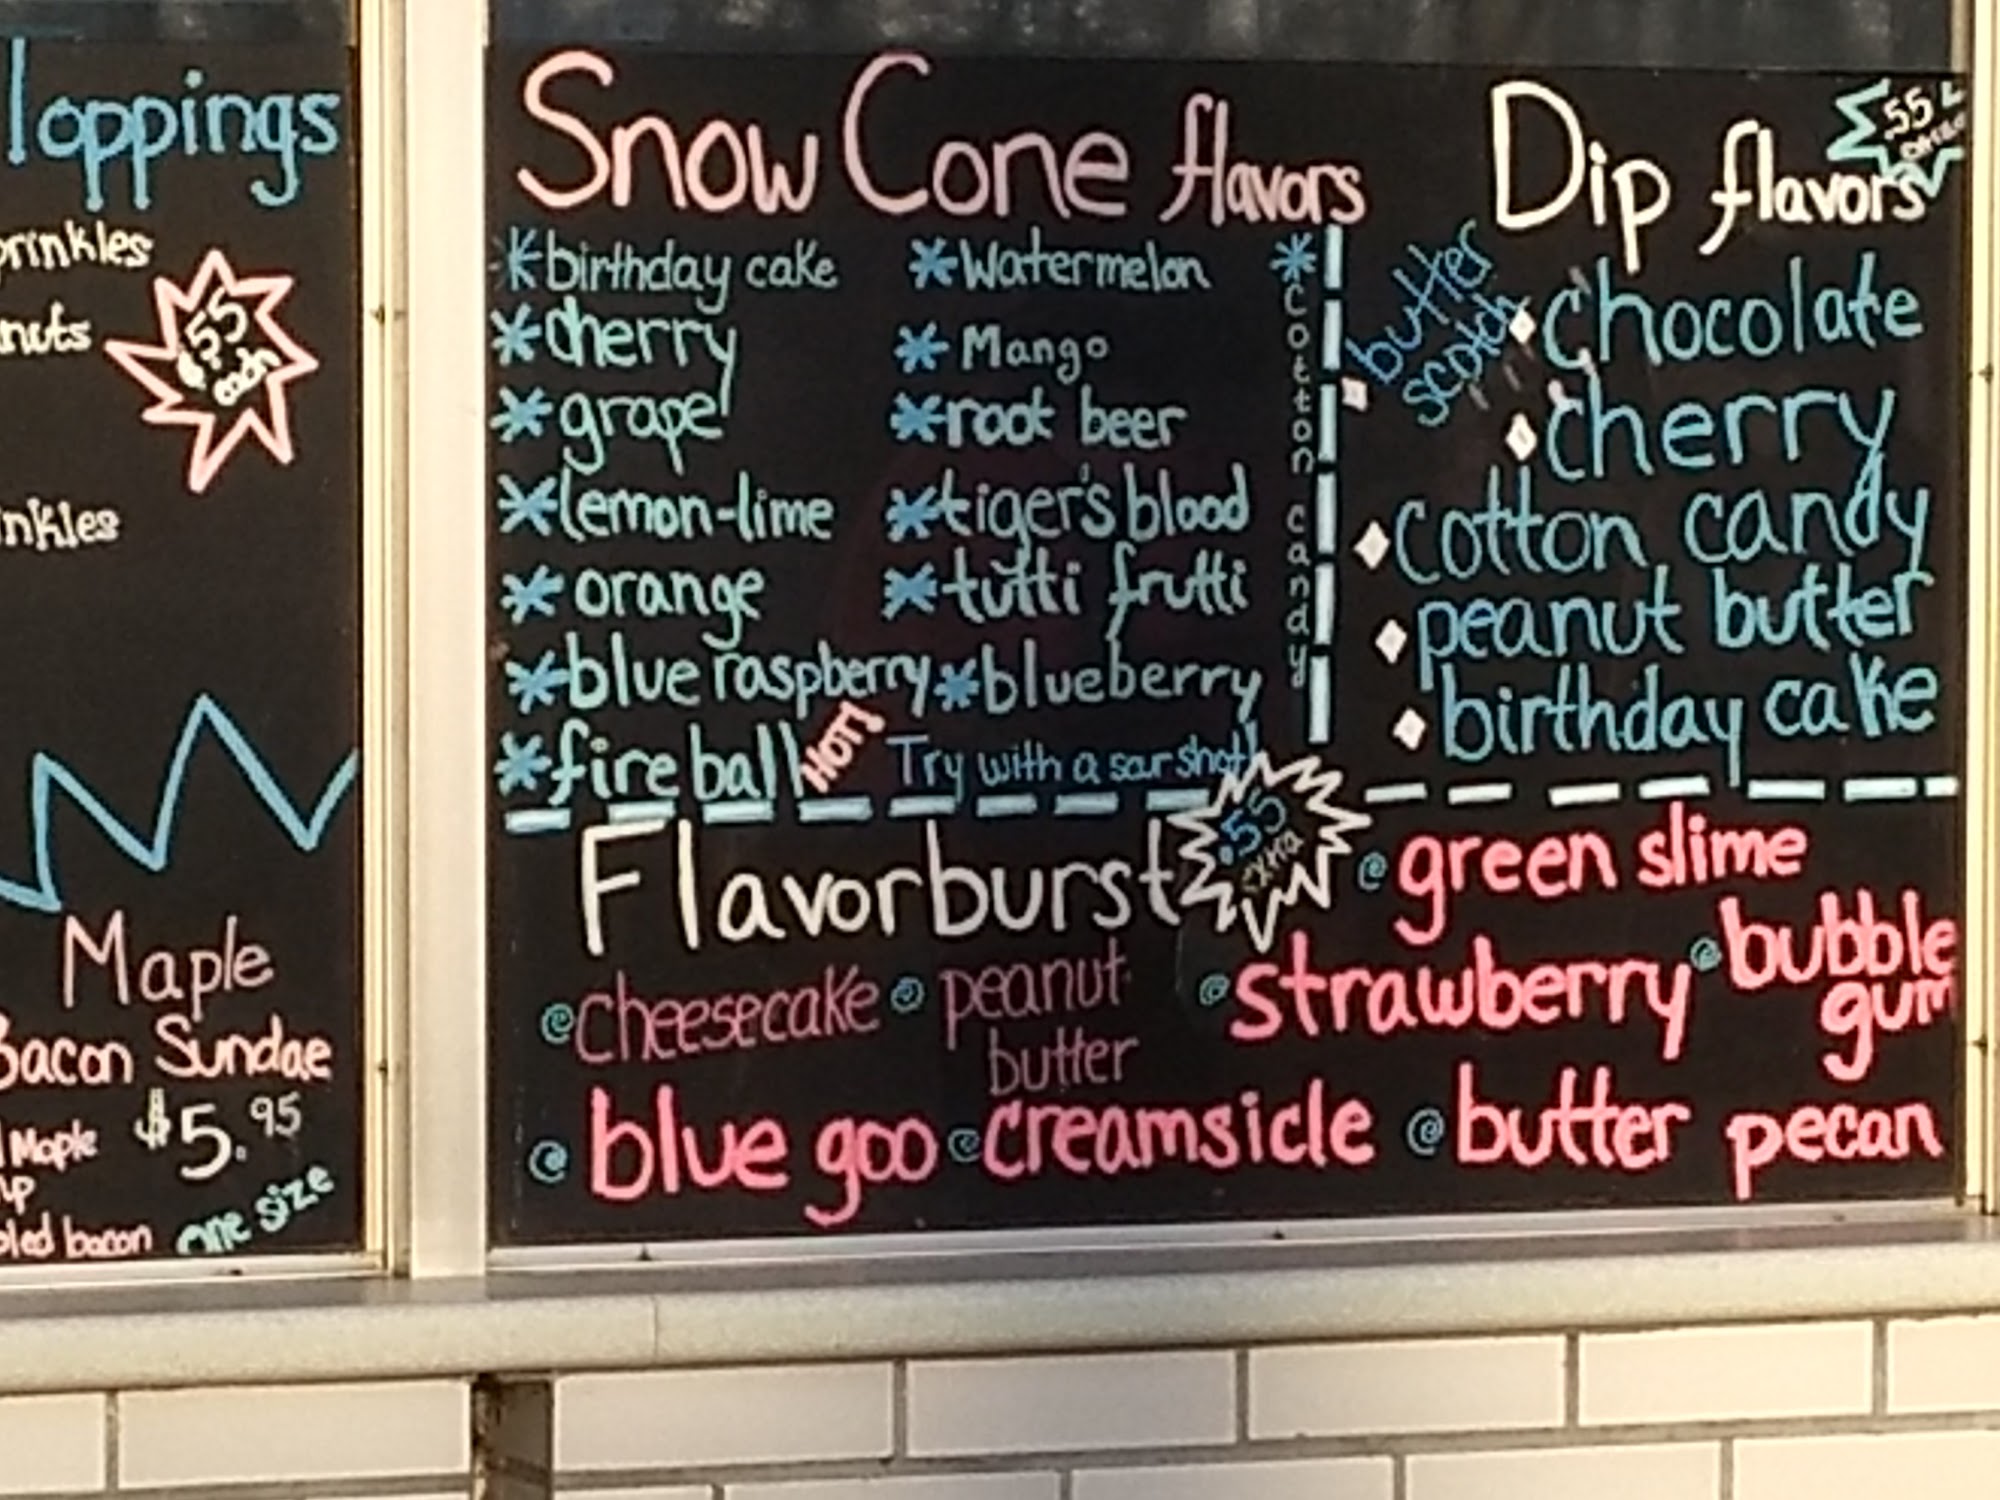 Toppings
prinkles
nuts
$.55
each
inkles
Maple
Bacon Sundae
$5.95
Maple
bacon
one size
Snow Cone flavors
birthday cake
cherry
grape
lemon-lime
orange
blue raspberry
fire ball HOT!
Watermelon
Mango
root beer
tiger's blood
tutti frutti
blueberry
Try with a sour shot!
cotton candy
Dip flavors
.55
butter
scotch
chocolate
cherry
cotton candy
peanut butter
birthday cake
Flavorburst
.55
extra
green slime
cheesecake
peanut
butter
strawberry
bubble
gum
blue goo
creamsicle
butter pecan